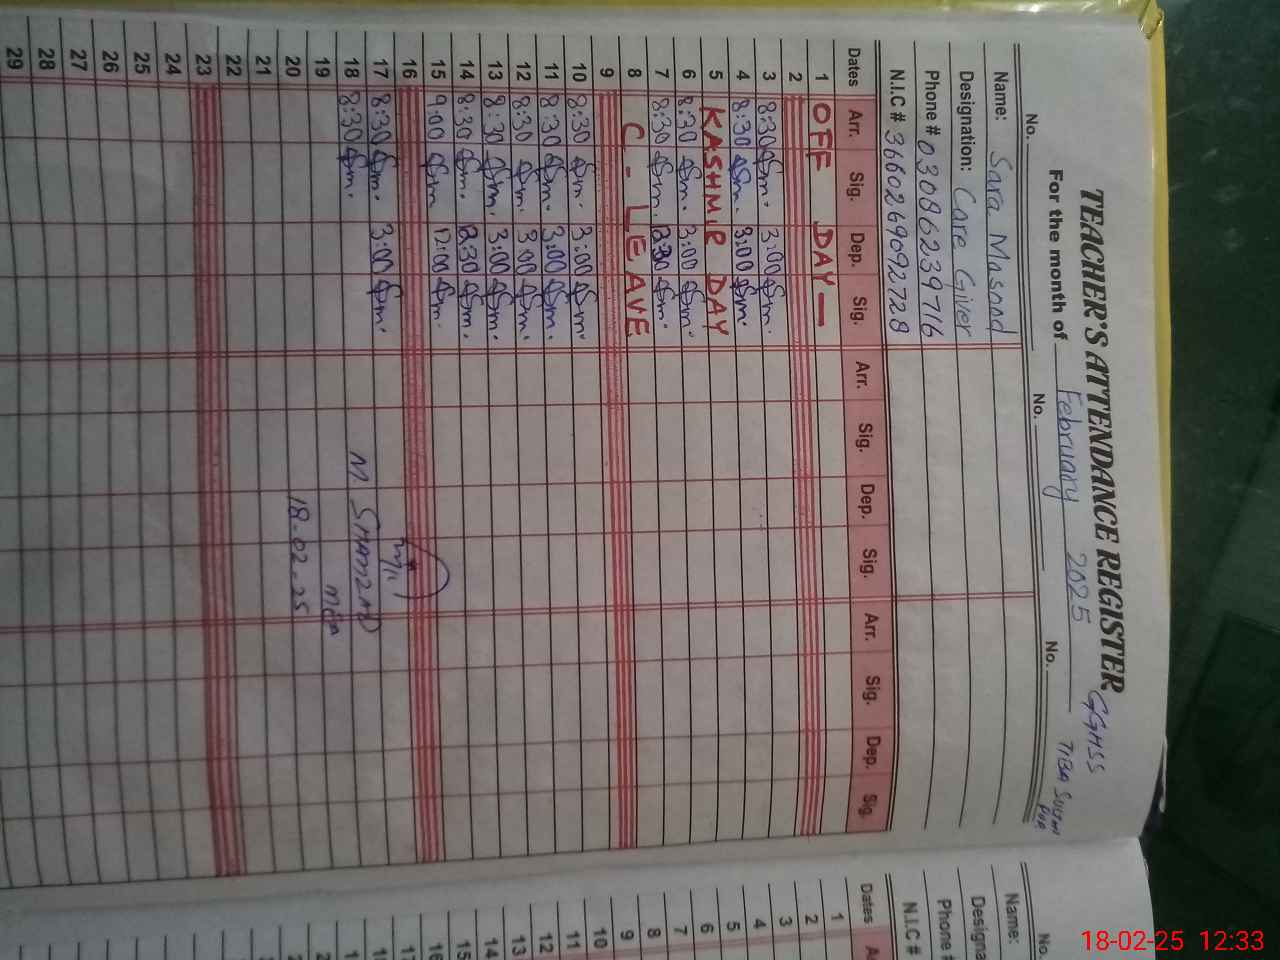 TEACHER'S ATTENDANCE REGISTER GGHSS
For the month of February 2025 TIBA SULTAN PUR
No. No. No.
Name: Sara Masood
Designation: Care Giver
Phone # 03086239716
N.I.C # 3660269092728
Dates Arr. Sig. Dep. Sig. Arr. Sig. Dep. Sig. Arr. Sig. Dep. Sig.
1 OFF DAY —
2
3 8:30 Sm. 3:00 Sm.
4 8:30 Sm. 3:00 Sm.
5 KASHMIR DAY
6 8:30 Sm. 3:00 Sm.
7 8:30 Sm. Sm.
8 C - LEAVE
9
10 8:30 Sm. 3:00 Sm.
11 8:30 Sm. 3:00 Sm.
12 8:30 Sm. 3:00 Sm.
13 8:30 Sm. 3:00 Sm.
14 8:30 Sm. Sm.
15 9:00 Sm 12:00 Sm.
16
17 8:30 Sm. 3:00 Sm.
18 8:30 Sm. M SHAHZAD
19
20 18-02-25
21
22
23
24
25
26
27
28
29
No.
Name:
Designa
Phone #
N.I.C #
Dates A
1
2
3
4
5
6
7
8
9
10
11
12
13
14
15
16
18-02-25 12:33